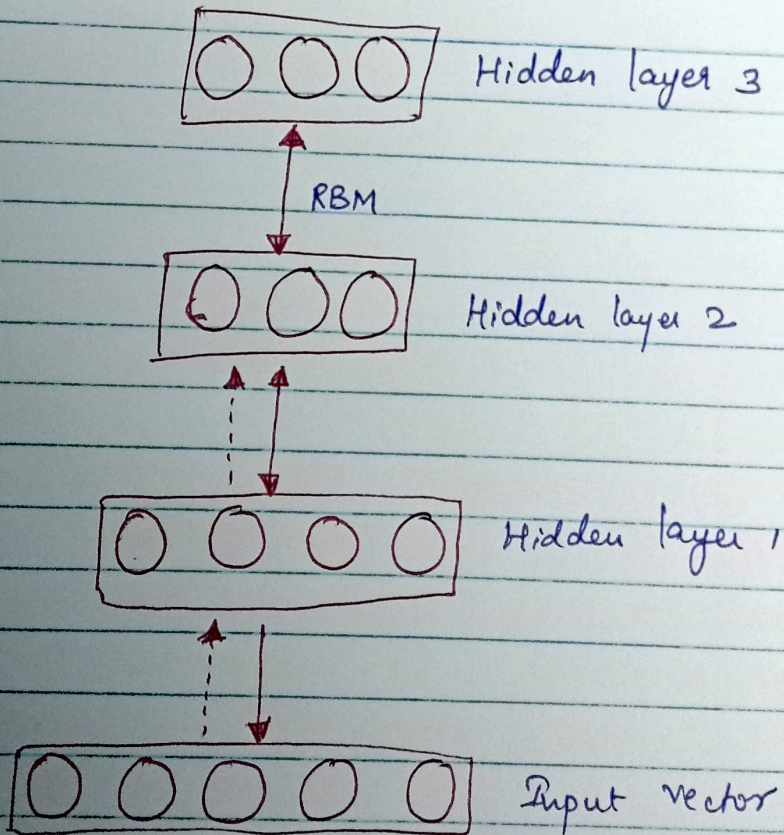 Hidden layer 3
RBM
Hidden layer 2
Hidden layer 1
Input vector